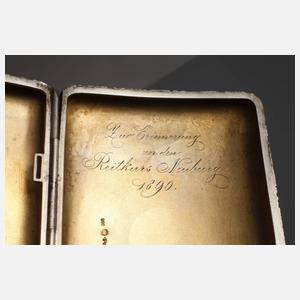 Zur Erinnerung
an den
Reitkurs Neuburg
1890.